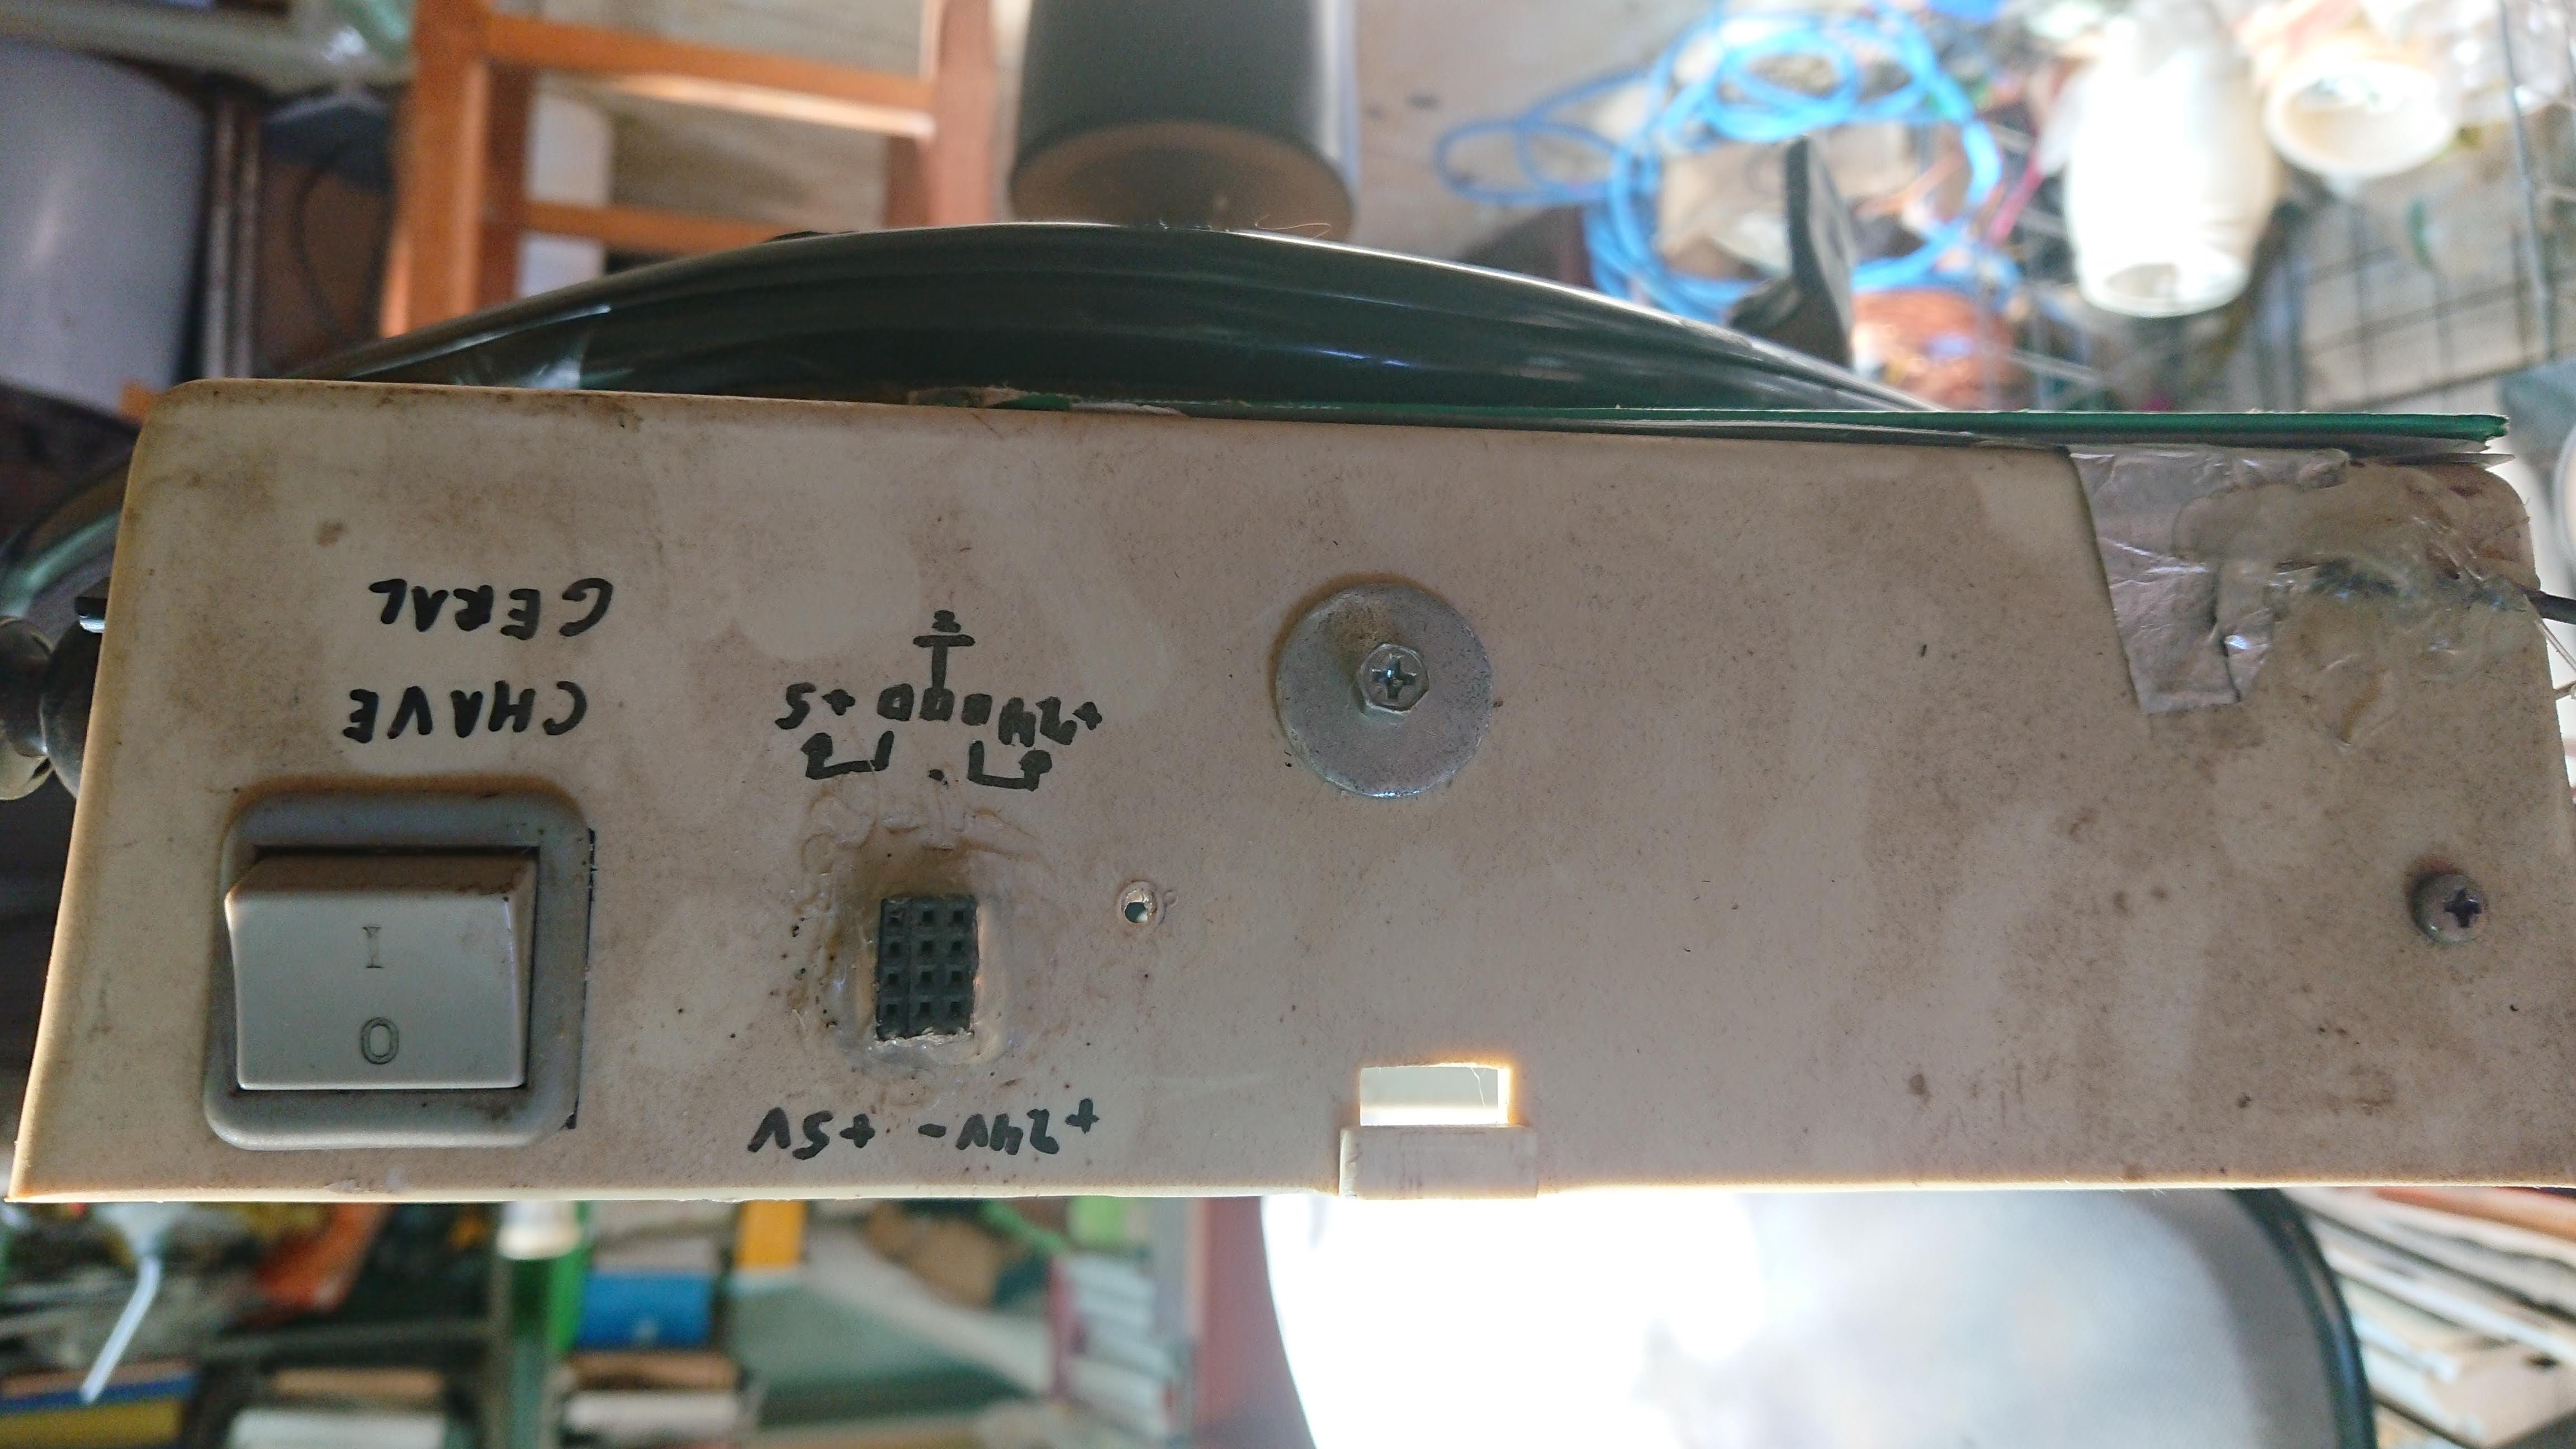 +24V- +5V
O
I
+24 +5
CHAVE
GERAL